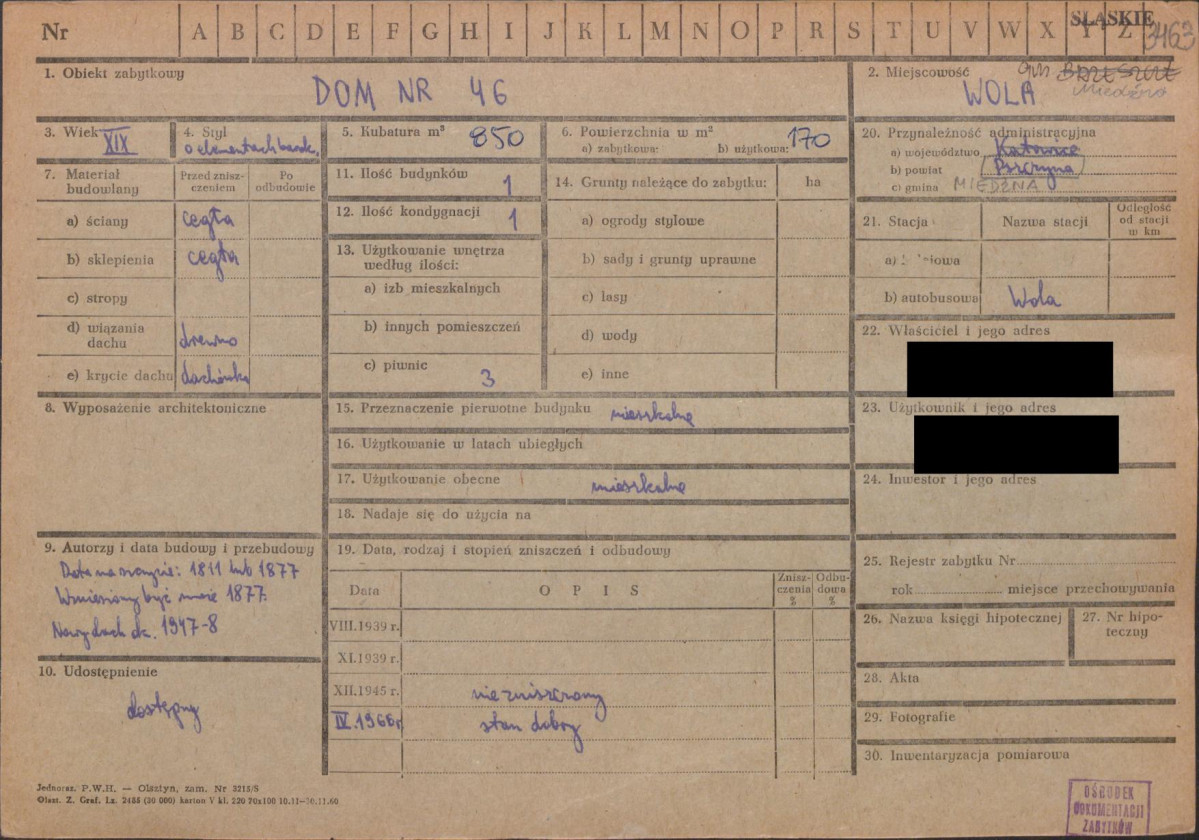 Nr A B C D E F G H I J K L M N O P R S T U V W X Y Z
ŚLĄSKIE
3463
1. Obiekt zabytkowy
DOM NR 46
2. Miejscowość gm BRZESZCZE
WOLA Miedźna
3. Wiek XIX
4. Styl
o elementach barok.
5. Kubatura m³ 850
6. Powierzchnia w m²
a) zabytkowa: b) użytkowa: 170
20. Przynależność administracyjna
a) województwo Katowice
b) powiat Pszczyna
c) gmina MIEDŹNA
7. Materiał budowlany
Przed zniszczeniem
Po odbudowie
a) ściany cegła
b) sklepienia cegła
c) stropy
d) wiązania dachu drewno
e) krycie dachu dachówka
11. Ilość budynków 1
12. Ilość kondygnacji 1
13. Użytkowanie wnętrza według ilości:
a) izb mieszkalnych
b) innych pomieszczeń
c) piwnic 3
14. Grunty należące do zabytku: ha
a) ogrody stylowe
b) sady i grunty uprawne
c) lasy
d) wody
e) inne
21. Stacja Nazwa stacji Odległość od stacji w km
b) autobusowa Wola
22. Właściciel i jego adres
23. Użytkownik i jego adres
24. Inwestor i jego adres
8. Wyposażenie architektoniczne
15. Przeznaczenie pierwotne budynku mieszkalne
16. Użytkowanie w latach ubiegłych
17. Użytkowanie obecne mieszkalne
18. Nadaje się do użycia na
9. Autorzy i data budowy i przebudowy
Data na szczycie: 1811 lub 1877
Wzniesiony być może 1877.
Nowy dach ok. 1947-8
10. Udostępnienie
dostępny
19. Data, rodzaj i stopień zniszczeń i odbudowy
Data OPIS Zniszczenia % Odbudowa %
VIII.1939 r.
XI.1939 r.
XII.1945 r. nie zniszczony
IV.1966 r. stan dobry
25. Rejestr zabytku Nr
rok miejsce przechowywania
26. Nazwa księgi hipotecznej
27. Nr hipoteczny
28. Akta
29. Fotografie
30. Inwentaryzacja pomiarowa
Jednoraz. P.W.H. — Olsztyn, zam. Nr 3215/S
Olszt. Z. Graf. Lz. 2485 (30 000) karton V kl. 220 70x100 10.11—30.11.60
OŚRODEK
DOKUMENTACJI
ZABYTKÓW